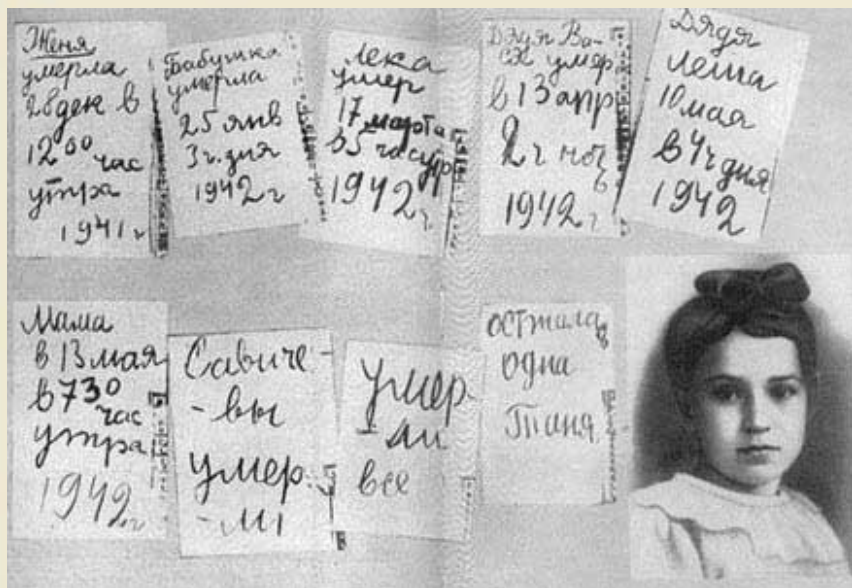 Женя
умерла
28 дек в
12 00 час
утра
1941 г
Бабушка
умерла
25 янв
3 ч. дня
1942 г
Лека
умер
17 марта
в 5 час утр
1942 г.
Дядя Ва-
ся умер
в 13 апр
2 ч ноч
ь
1942 г
Дядя
Леша
10 мая
в 4 ч дня
1942
Мама
в 13 мая
в 730
час
утра
1942 г
Савиче-
-вы
умер-
-ли
умер
-ли
все
осталась
одна
Таня